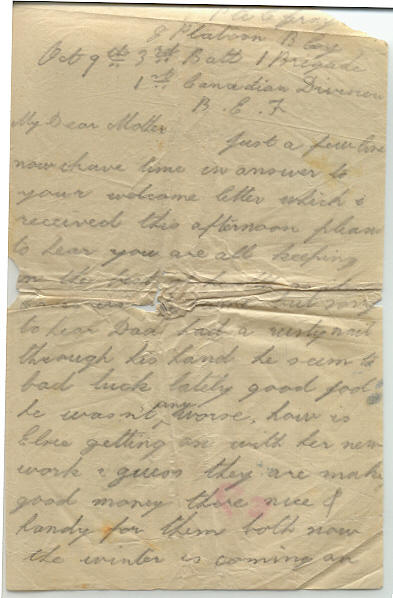 Pte C Gray
8 Platoon B Coy
Oct 9th 3rd Batt 1 Brigade
1st Canadian Division
B.E.F
My Dear Mother
Just a few line
now i have time in answer to
your welcome letter which i
received this afternoon pleas
to hear you are all keeping
in the best of
but sorry
to hear Dad had a rusty nail
through his hand he seem to
bad luck lately good job
he wasn't any worse, how is
Elsie getting on with her new
work i guess they are make
good money there nice &
handy for them both now
the winter is coming on